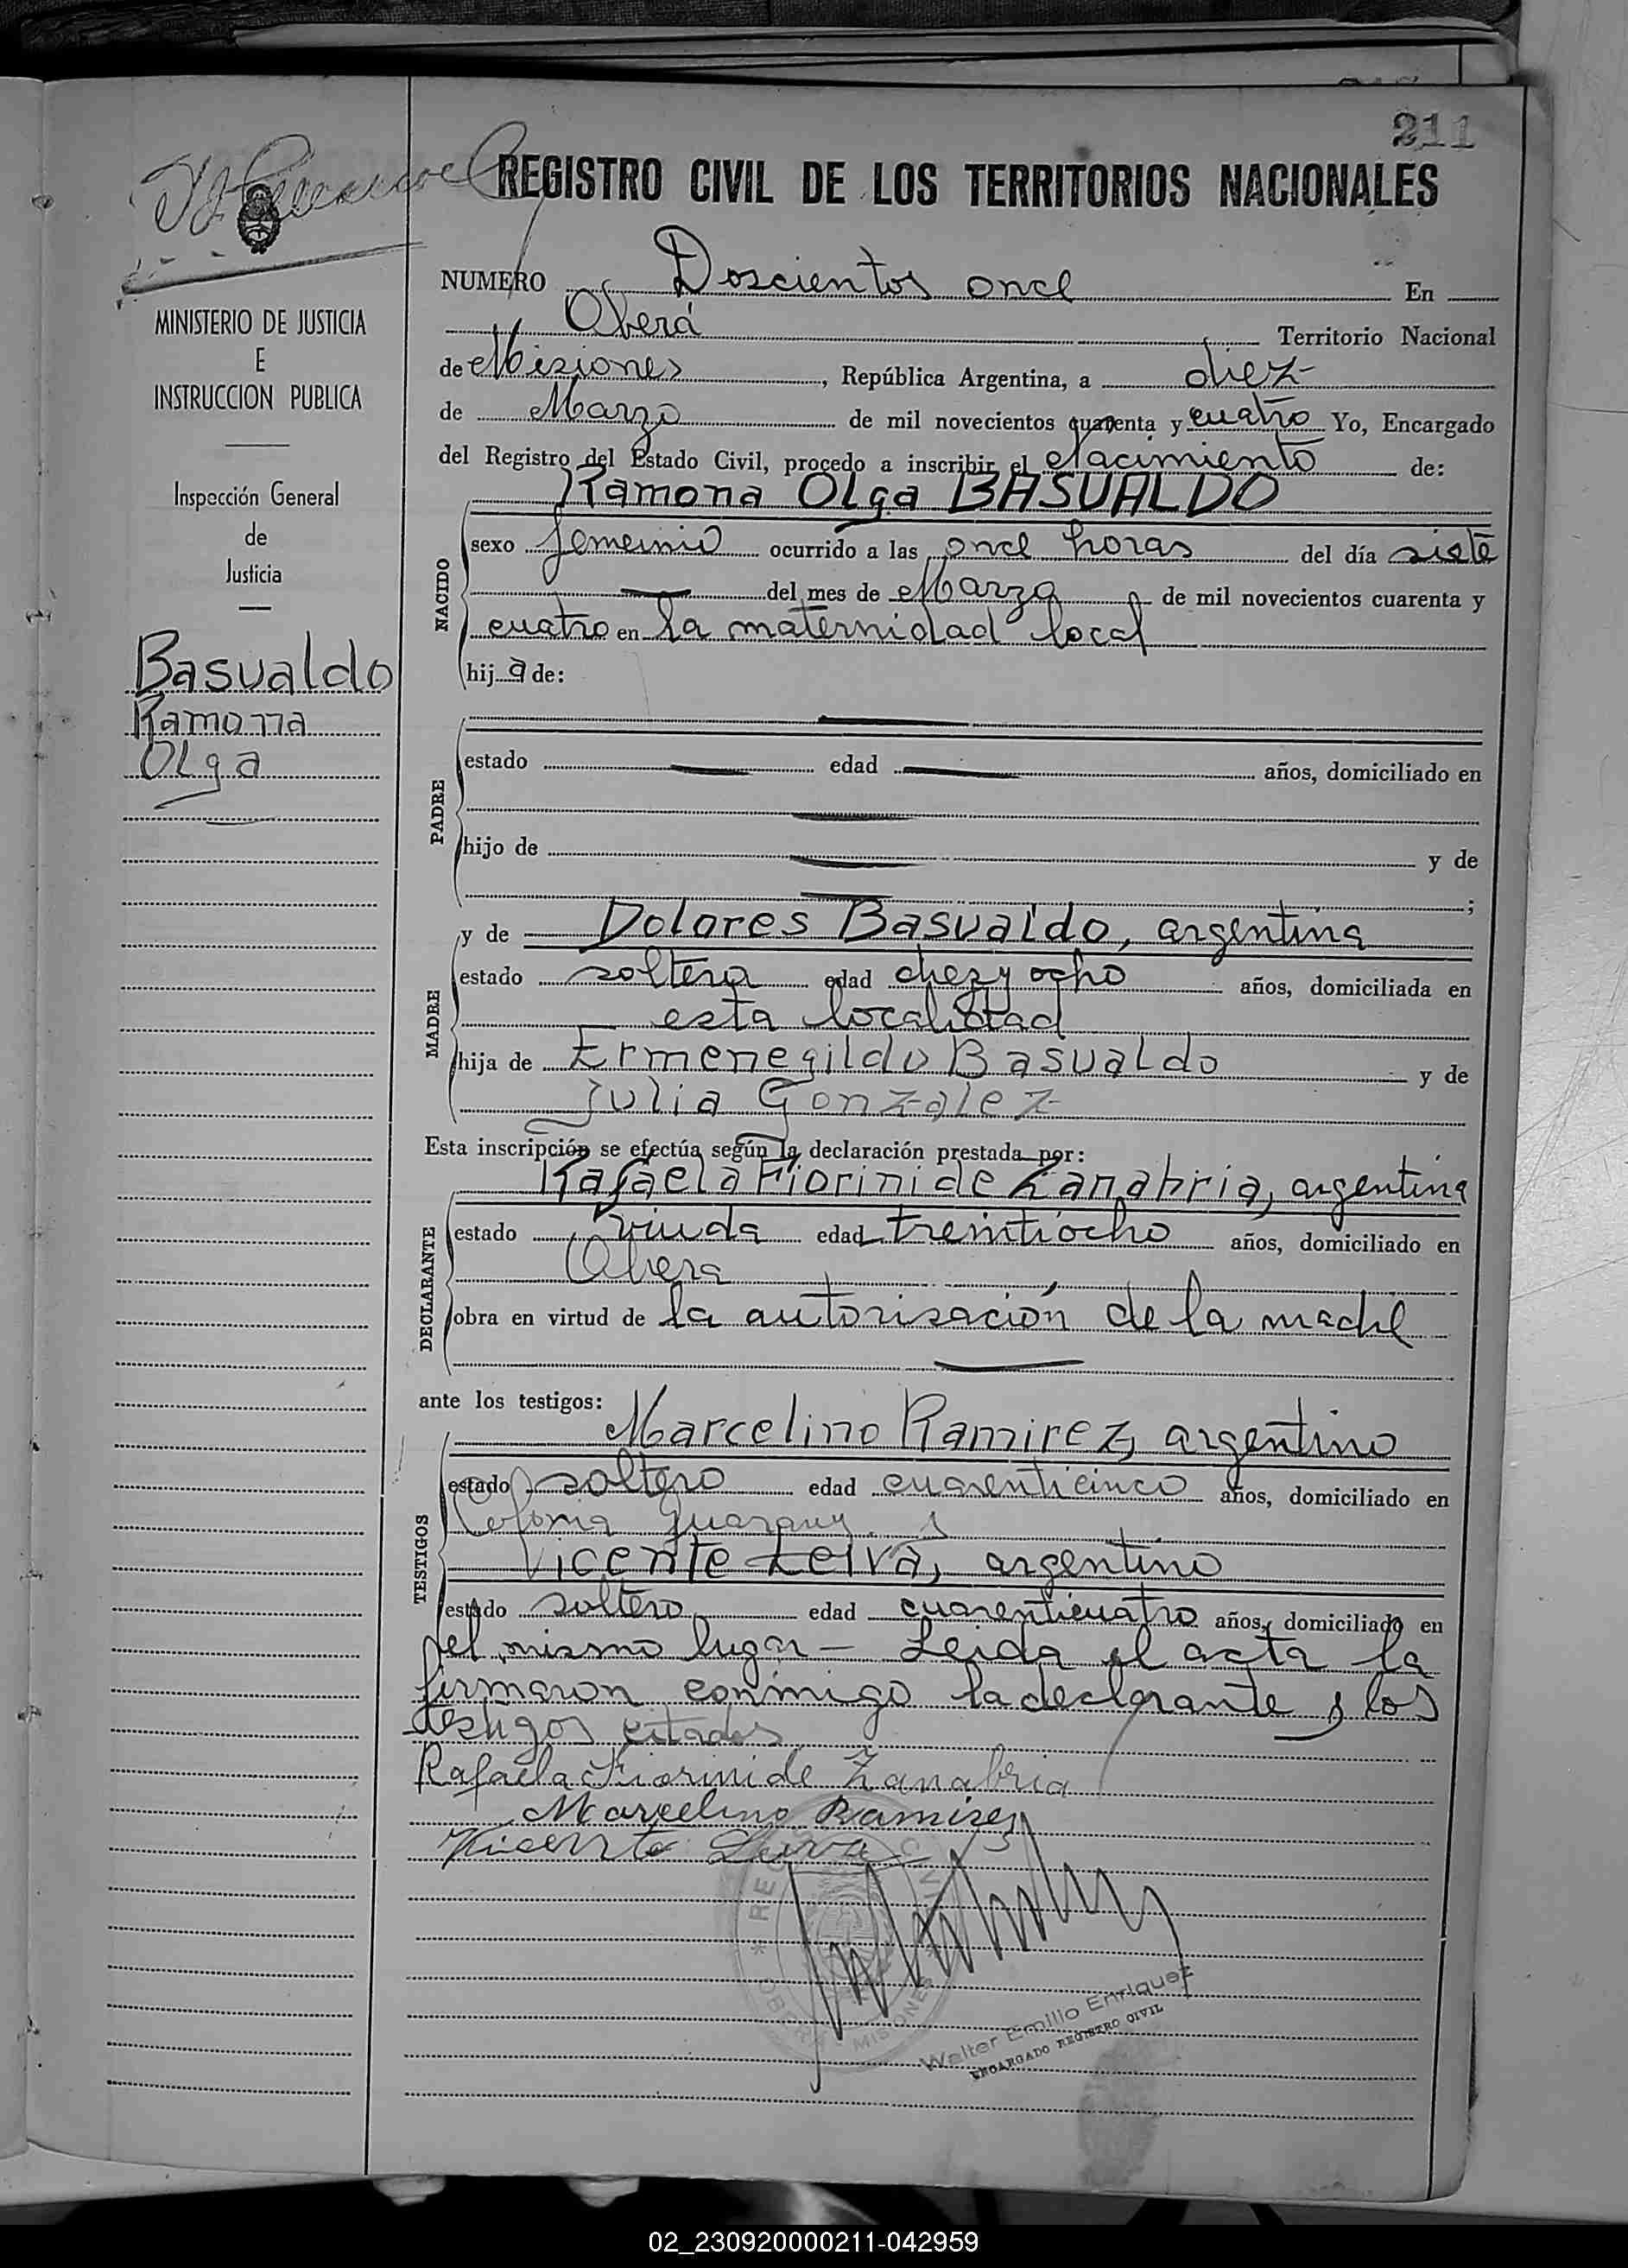 211
REGISTRO CIVIL DE LOS TERRITORIOS NACIONALES
MINISTERIO DE JUSTICIA
E
INSTRUCCION PUBLICA
Inspección General
de
Justicia
Basualdo
Ramona
Olga
NUMERO Doscientos once En
Oberá Territorio Nacional
de Misiones, República Argentina, a diez
de Marzo de mil novecientos cuarenta y cuatro Yo, Encargado
del Registro del Estado Civil, procedo a inscribir el Nacimiento de:
Ramona Olga BASUALDO
NACIDO
sexo femenino ocurrido a las once horas del día siete
del mes de Marzo de mil novecientos cuarenta y
cuatro en la maternidad local
hij a de:
PADRE
estado edad años, domiciliado en
hijo de y de
;
MADRE
y de Dolores Basualdo, argentina
estado soltera edad diez y ocho años, domiciliada en
esta localidad
hija de Ermenegildo Basualdo y de
Julia Gonzalez
Esta inscripción se efectúa según la declaración prestada por:
DECLARANTE
Rafaela Fiorini de Zanabria, argentina
estado viuda edad treintiocho años, domiciliado en
Obera
obra en virtud de la autorisación de la madre
ante los testigos:
TESTIGOS
Marcelino Ramirez, argentino
estado soltero edad cuarenticinco años, domiciliado en
Colonia Guarany y
Vicente Leiva, argentino
estado soltero edad cuarenticuatro años, domiciliado en
el mismo lugar - Leida el acta la
firmaron conmigo la declarante y los
testigos citados
Rafaela Fiorini de Zanabria
Marcelino Ramires
Vicente Leiva
OBERA MISIONES
Walter Emilio Enriquez
ENCARGADO REGISTRO CIVIL
02_230920000211-042959